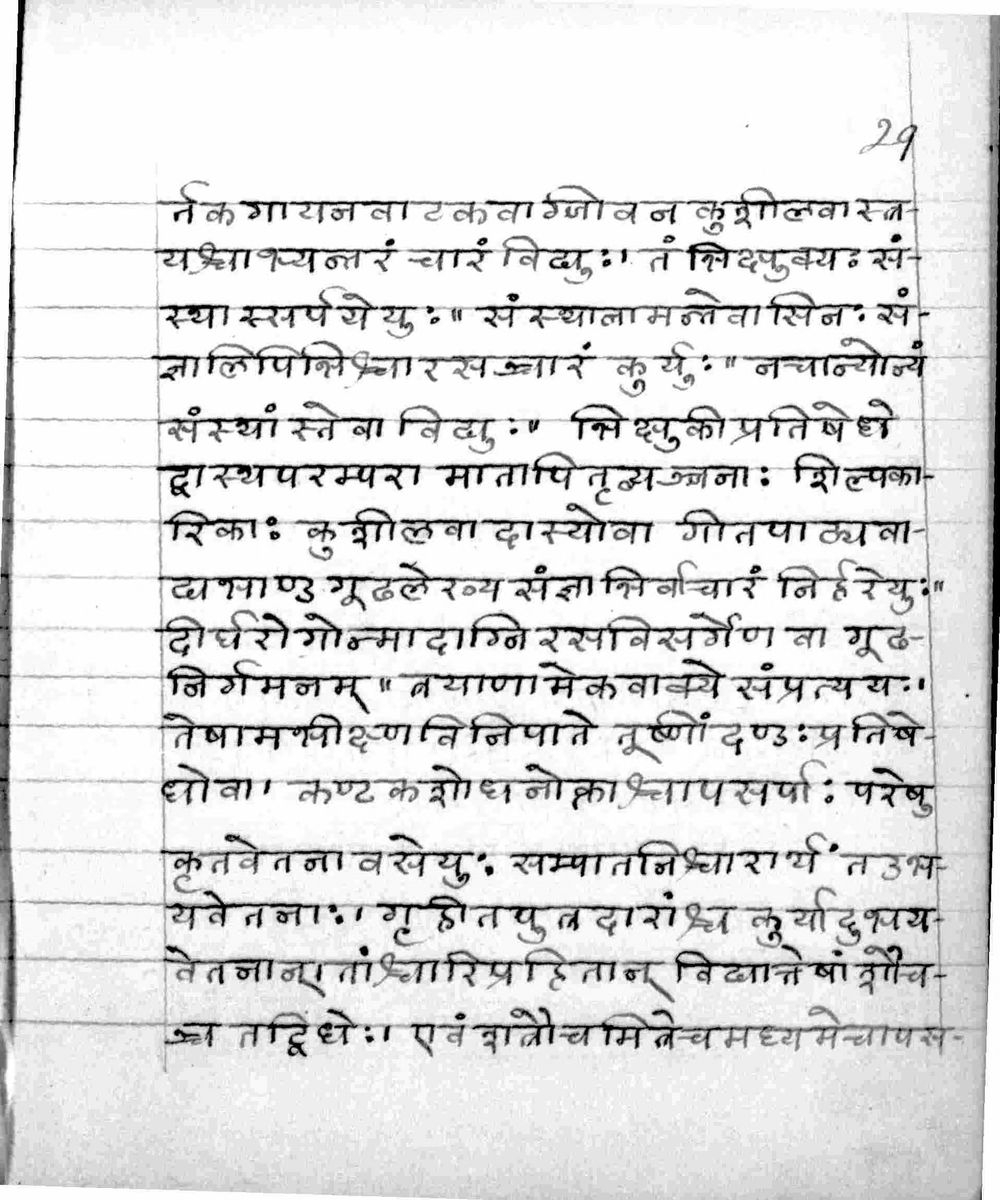 29
र्तकगायनवाटकवाग्जीवनकुशीलवास्त्रि-
यश्चाभ्यन्तरं चारं विद्युः। तं भिक्षुक्यः सं-
स्थास्सर्पयेयुः॥ संस्थानामन्तेवासिनः सं-
ज्ञालिपिभिश्चारसञ्चारं कुर्युः॥ नचान्योन्यं
संस्थांस्तेवा विद्युः॥ भिक्षुकीप्रतिषेधे
द्वास्थपरम्परा मातापितृव्यञ्जनाः शिल्पका-
रिकाः कुशीलवा दास्योवा गीतपाठ्यवा-
द्यभाण्डगूढलेख्यसंज्ञाभिर्वाचारं निर्हरेयुः॥
दीर्घरोगोन्मादाग्निरसविसर्गेण वा गूढ-
निर्गमनम्॥ त्रयाणामेकवाक्ये संप्रत्ययः।
तेषामभीक्ष्णविनिपाते तूष्णींदण्डः प्रतिषे-
धोवा। कण्टकशोधनोक्ताश्चापसर्पाः परेषु
कृतवेतनावसेयुः सम्पातनिश्चारार्थं त उभ-
यवेतनाः। गृहीतपुत्रदारांश्च कुर्यादुभय-
वेतनान्। तांश्चारिप्रहितान् विद्यात्तेषां शौच-
ञ्च तद्विधेः। एवं शत्रौच मित्रेच मध्यमेचापस-